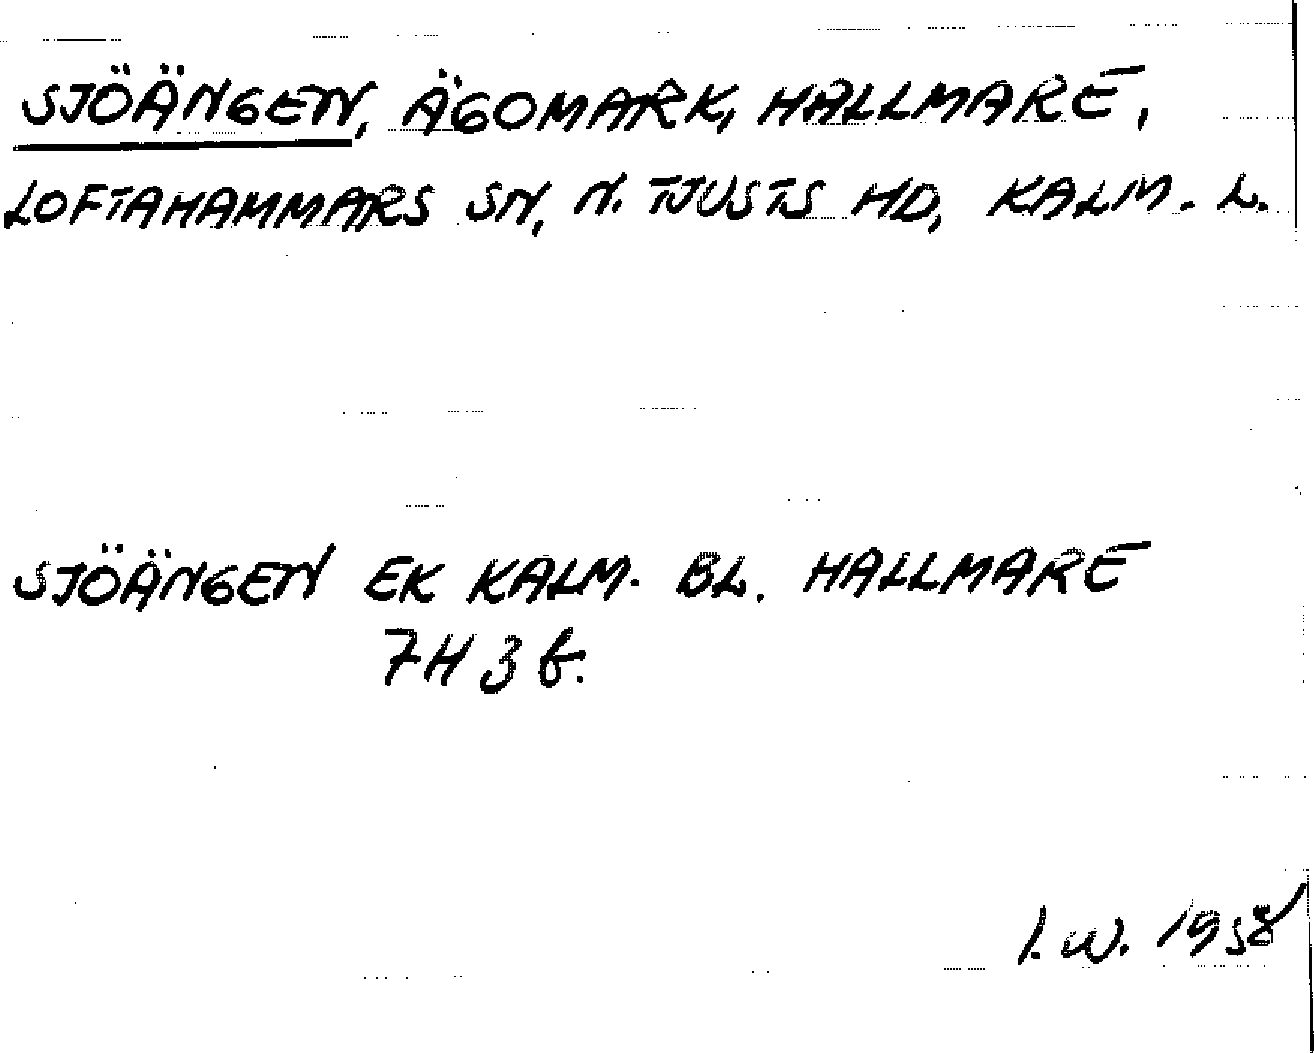 SJÖÄNGEN, ÄGOMARK, HALLMARE,
LOFTAHAMMARS SN, N. TJUSTS HD, KALM. L.
SJÖÄNGEN EK KALM. BL. HALLMARE
7H 3 b.
I. W. 1958